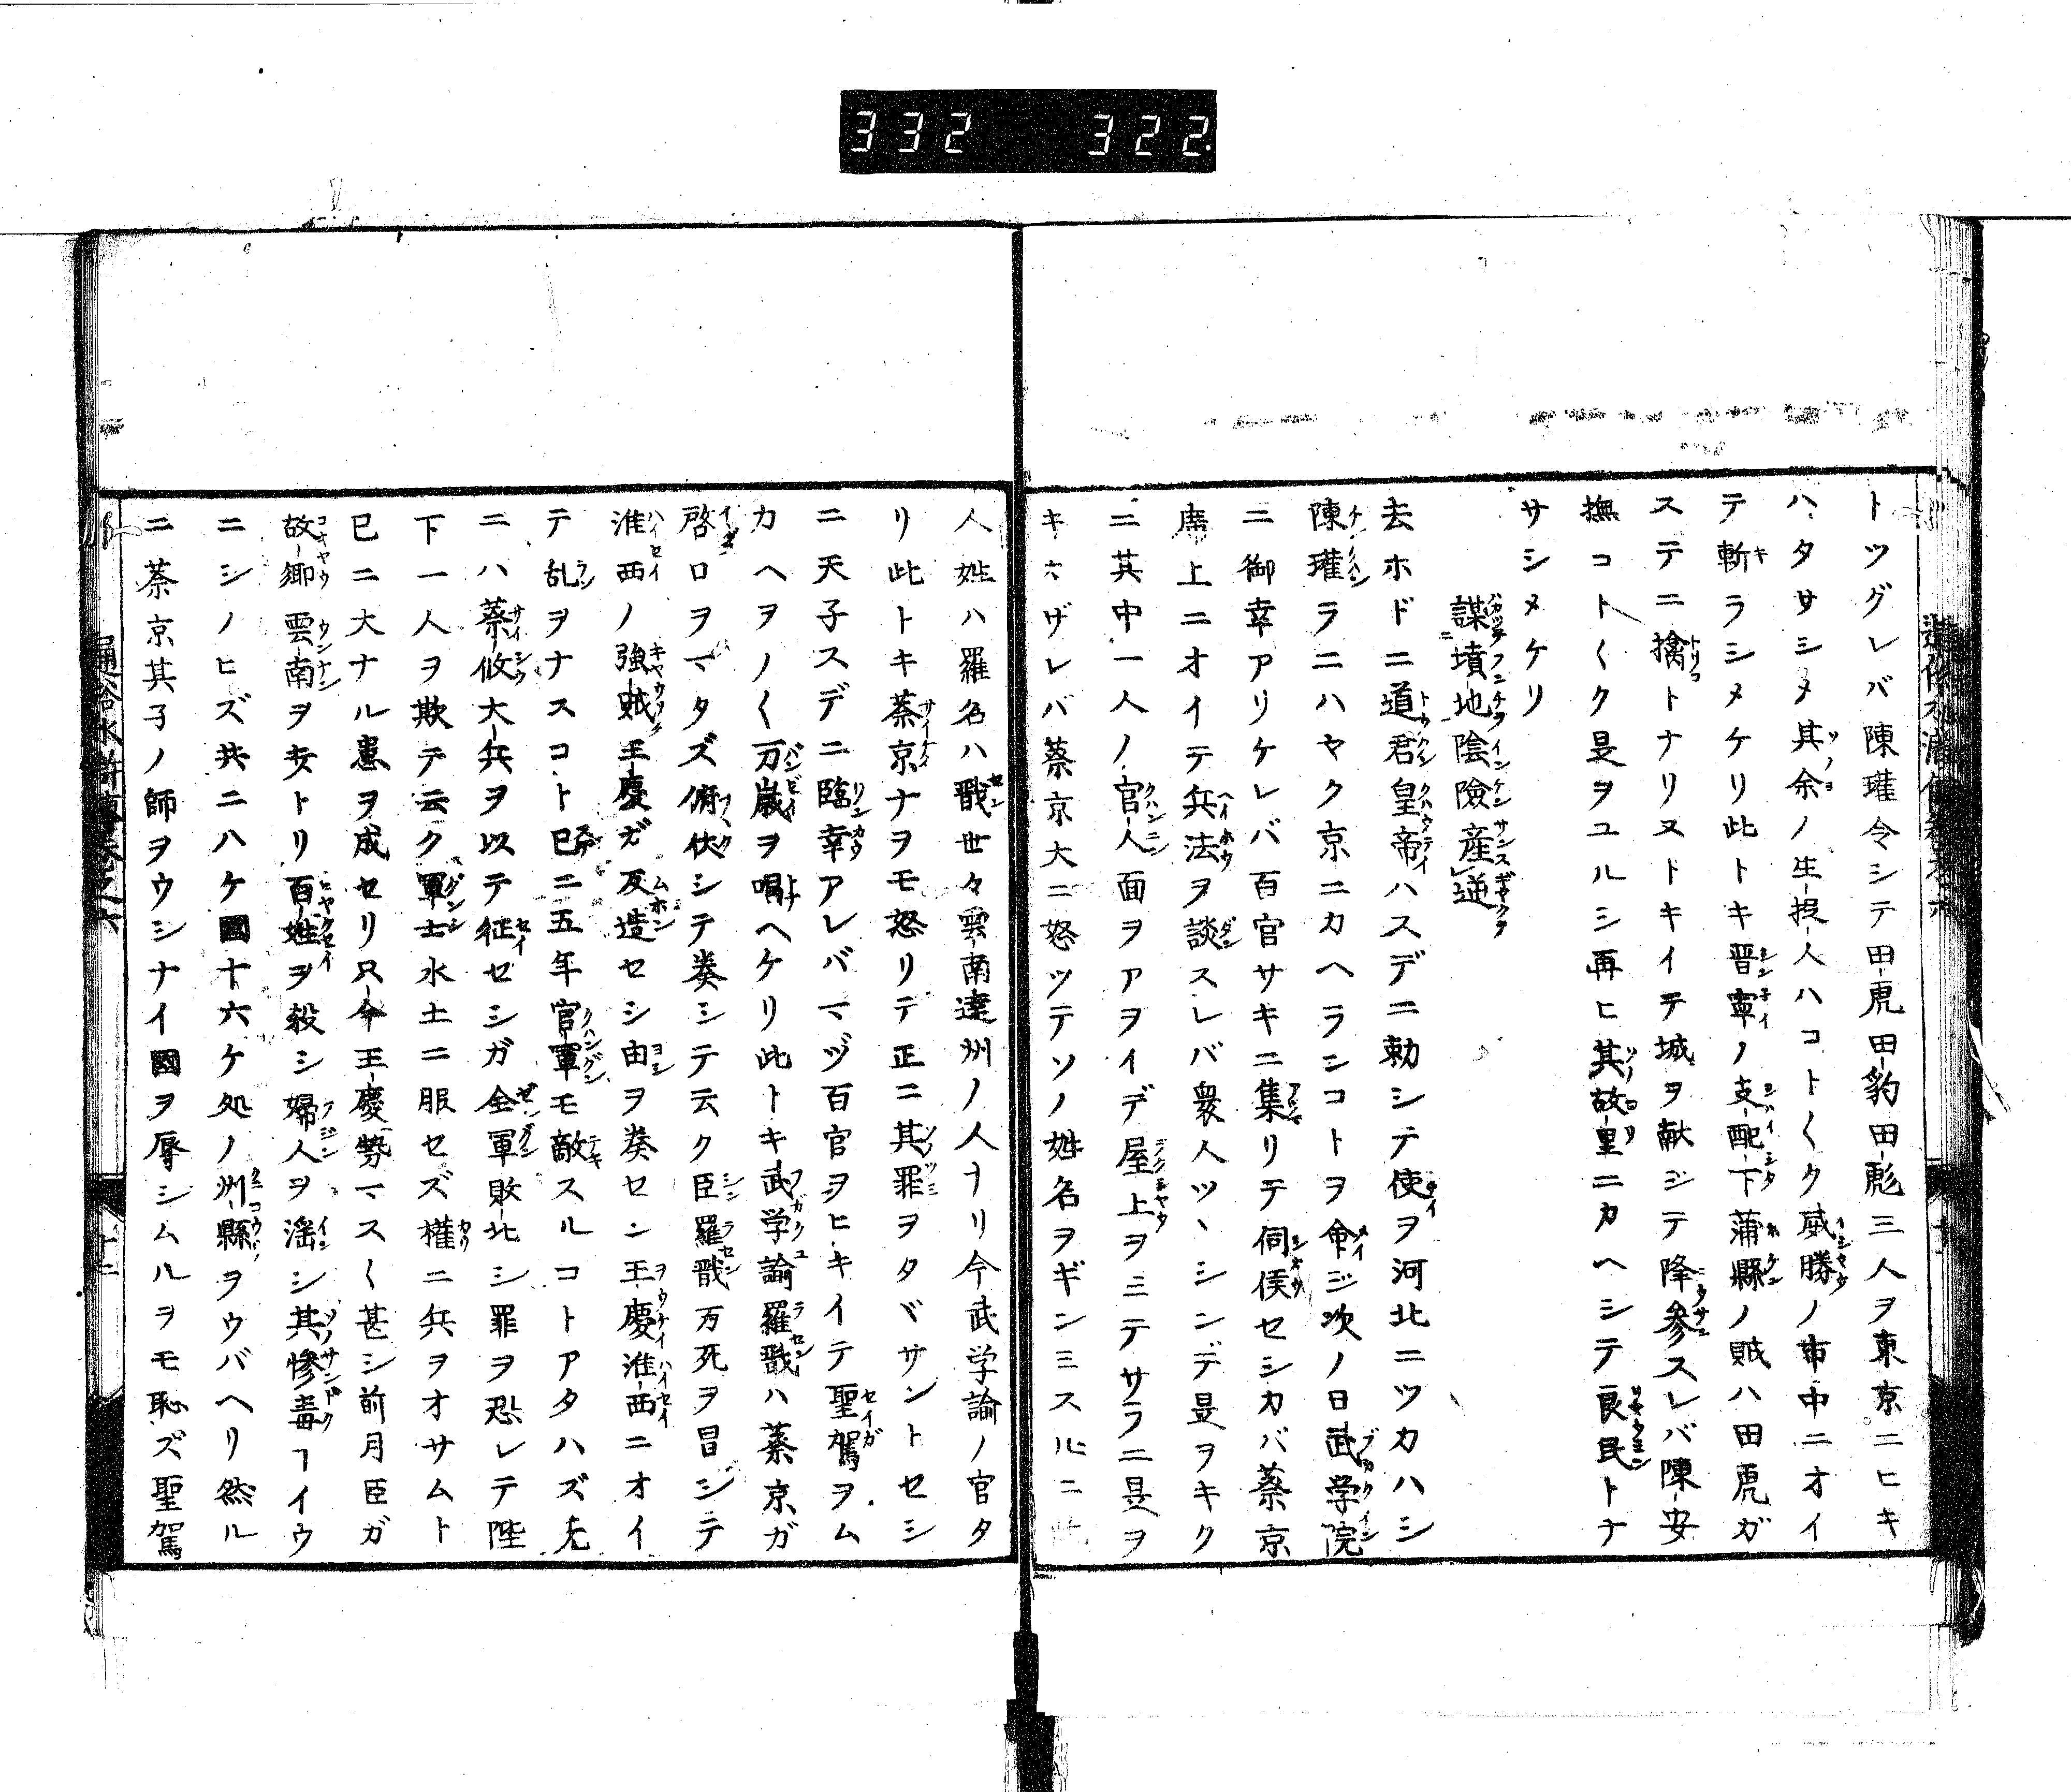 332 322.
トツグレバ陳瓘令シテ田虎田豹田彪三人ヲ東京ニヒキ
ハタサシメ其余ノ生捉人ハコト〱ク威勝ノ市中ニオイ
テ斬ラシメケリ此トキ晋寧ノ支配下蒲縣ノ賊ハ田虎ガ
ステニ擒トナリヌトキイテ城ヲ献ジテ降参スレバ陳安
撫コト〱ク是ヲユルシ再ヒ其故里ニカヘシテ良民トナ
サシメケリ
謀墳地陰險産逆
去ホドニ道君皇帝ハスデニ勅シテ使ヲ河北ニツカハシ
陳瓘ラニハヤク京ニカヘラシコトヲ命ジ次ノ日武学院
ニ御幸アリケレバ百官サキニ集リテ伺侯セシカバ蔡京
席上ニオイテ兵法ヲ談スレバ衆人ツヽシンデ是ヲキク
ニ其中一人ノ官人面ヲアヲイデ屋上ヲミテサラニ是ヲ
キカザレバ蔡京大ニ怒ツテソノ姓名ヲギンミスルニ此
人姓ハ羅名ハ戩世々雲南達州ノ人ナリ今武学諭ノ官タ
リ此トキ蔡京ナヲモ怒リテ正ニ其罪ヲタヾサントセシ
ニ天子スデニ臨幸アレバマヅ百官ヲヒキイテ聖駕ヲム
カヘヲノ〱万歳ヲ唱ヘケリ此トキ武学諭羅戩ハ蔡京ガ
啓口ヲマタズ俯伏シテ奏シテ云ク臣羅戩万死ヲ冒シテ
淮西ノ強賊王慶ガ反造セシ由ヲ奏セン王慶淮西ニオイ
テ乱ヲナスコト已ニ五年官軍モ敵スルコトアタハズ先
ニハ蔡攸大兵ヲ以テ征セシガ全軍敗北シ罪ヲ恐レテ陛
下一人ヲ欺テ云ク軍士水土ニ服セズ權ニ兵ヲオサムト
已ニ大ナル患ヲ成セリ只今王慶勢マス〱甚シ前月臣ガ
故郷雲南ヲ安トリ百姓ヲ殺シ婦人ヲ滛シ其惨毒ヿイウ
ニシノヒズ共ニハケ國十六ケ処ノ州縣ヲウバヘリ然ル
ニ蔡京其子ノ師ヲウシナイ國ヲ辱シムルヲモ恥ズ聖駕
通俗水滸傳巻之六
十二